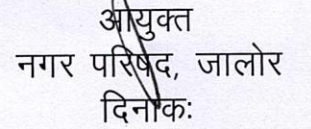 आयुक्त
नगर परिषद, जालोर
दिनांक: